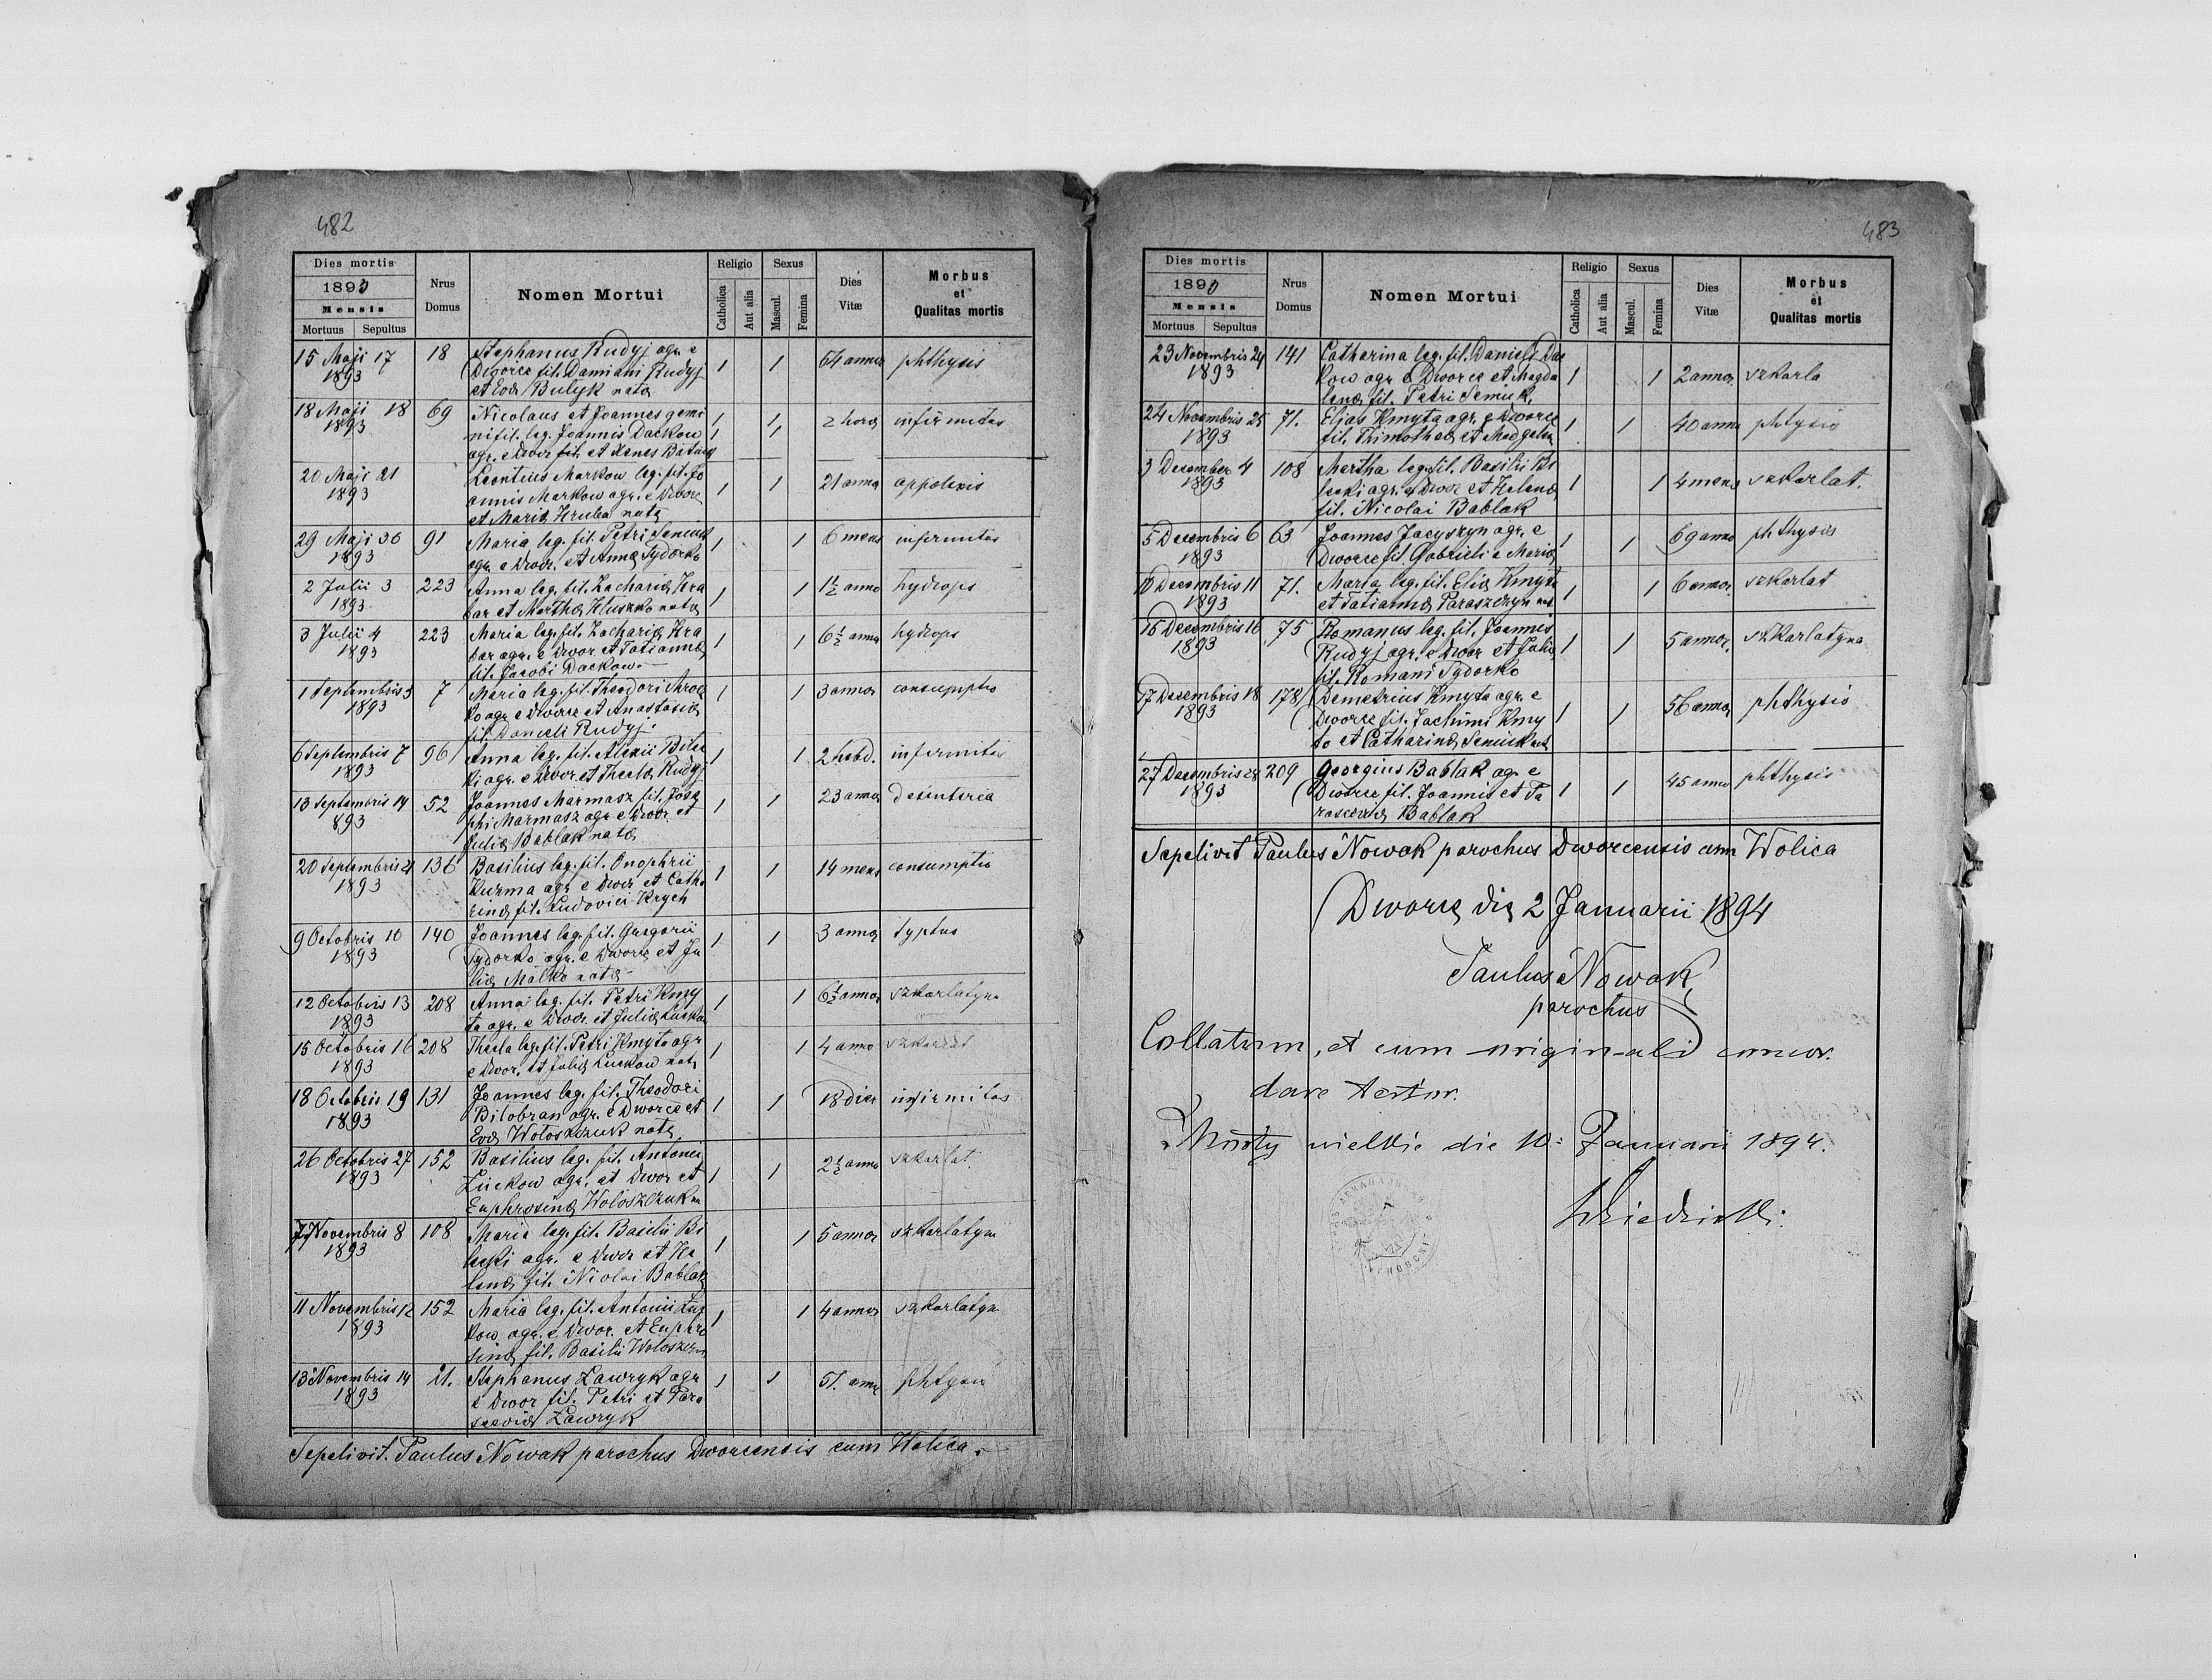 482
Dies mortis
1893
Mensis
Mortuus Sepultus
Nrus Domus
Nomen Mortui
Religio
Catholica
Aut alia
Sexus
Mascul.
Femina
Dies Vitæ
Morbus et Qualitas mortis
15 Maji 17 18 Stephanus Rudyj agr. e 1 1 64 annor phthysis
1893 Dworce fil. Damiani Rudyj
et Evæ Bulyk nata
18 Maji 18 69 Nicolaus et Joannes gemi 1 1 2 horæ infirmitas
1893 ni fil. leg. Joannis Dackow 1 1
agr. e Dwor fil. et Xenes
20 Maji 21 Leontius Markow leg. fil. Jo 1 1 21 anna appolexis
1893 annis Markow agr. e Dworc.
et Mariæ Hruba nata
29 Maji 30 91 Maria leg. fil. Petri Seniuk 1 1 6 mens infirmitas
1893 agr. e Dwor. et Annæ Tydorko
2 Julii 3 223 Anna leg. fil. Zachariæ Hra 1 1 1½ anno hydrops
1893 bar et Marthæ Hluszko nata
3 Julii 4 223 Maria leg. fil. Zachariæ Hra 1 1 6½ anna hydrops
1893 bar agr. e Dwor. et Tatiannæ
fil. Jacobi Dackow.
1 Septembris 3 7 Maria leg. fil. Theodori 1 1 3 annor consumptio
1893 ko agr. e Dworce et Anastasiæ
fil. Danieli Rudyj.
6 Septembris 7 96 Anna leg. fil. Alexii Bile 1 1 2 hebd. infirmitas
1893 ki agr. e Dwor. et Theclæ Rudyj
13 Septembris 14 52 Joannes Marmasz fil. Jose 1 1 23 annor desinteria
893 phi Marmasz agr. e Dwor. et
Juliæ Bablak nata
20 Septembris 21 136 Basilius leg. fil. Onophrii 1 1 14 mens consumptio
1893 Kurma agr. e Dwor. et Catha
rinæ fil. Ludovici Krych
9 Octobris 10 140 Joannes leg. fil. Gregorii 1 1 3 annor typhus
1893 Tydorko agr. e Dworce et Ju
liæ Malko nata
12 Octobris 13 208 Anna leg. fil. Petri Kmy 1 1 6½ annor szkarlatyna
1893 ta agr. e Dwor. et Juliæ Luckow
15 Octobris 16 208 Thecla leg. fil. Petri Kmyta agr 1 1 4 anno szkarlat
1893 e Dwor. et Juliæ Luckow nata
18 Octobris 19 131 Joannes leg. fil. Theodori 1 1 18 dier infirmitas
1893 Bilobran agr. e Dworce et
Evæ Wołoszczuk nata
26 Octobris 27 152 Basilius leg. fil. Antonii 1 1 2½ anno szkarlat.
1893 Luckow agr. et Dwor et
Euphrosinæ Wołoszczuk na
7 Novembris 8 108 Maria leg. fil. Basilii Bi 1 1 5 annor szkarlatyn
1893 lecki agr. e Dwor et He
lenæ fil. Nicolai Bablak
11 Novembris 12 152 Maria leg. fil. Antonii Luc 1 1 4 annor szkarlatyn
1893 kow agr. e Dwor. et Euphro
sinæ fil. Basilii Wołoszczuk
13 Novembris 14 21. Stephanus Ławryk agr 1 1 51. anno phtysis
1893 e Dwor fil. Petri et Para
sceviæ Ławryk
Sepelivit. Paulus Nowak parochus Dworcensis cum Wolica.
483
Dies mortis
1893
Mensis
Mortuus Sepultus
Nrus Domus
Nomen Mortui
Religio
Catholica
Aut alia
Sexus
Mascul.
Femina
Dies Vitæ
Morbus et Qualitas mortis
23 Novembris 24 141 Catharina leg. fil. Danieli Dac 1 1 2 annor szkarla
1893 kow agr. e Dworce et Magda
lenæ fil. Petri Seniuk.
24 Novembris 25 71. Elias Kmyta agr. e Dworce 1 1 40 anno phtysis
1893 fil. Thimothei et Madgalen
3 December 4 108 Martha leg. fil. Basilii Bi 1 1 4 mens szkarlat.
1893 lecki agr. e Dwor et Helenæ
fil. Nicolai Bablak
5 Decembris 6 63 Joannes Jacyszyn agr. e 1 1 69 anno phthysis
1893 Dworce fil. Gabrieli e Mariæ
10 Decembris 11 71. Maria leg. fil. Eliæ Kmyta 1 1 6 annor. szkarlat
1893 et Tatiannæ Paraszczyn nat
15 Decembris 16 75 Romanus leg. fil. Joannes 1 1 5 annor. szkarlatyna
1893 Rudyj agr. e Dwor et Juliæ
fil. Romani Tydorko
17 Decembris 18 178 Demetrius Kmyta agr. e 1 1 56 annor phthysis
1893 Dworce fil. Jachimi Kmy
ta et Catharinæ Seniuk nat
27 Decembris 28 209 Georgius Bablak ag. e 1 1 45 anno phthysis
1893 Dworce fil. Joannis et Pa
rasceviæ Bablak
Sepelivit Paulus Nowak parochus Dworcensis cum Wolica
Dworce die 2 Januarii 1894
Paulus Nowak
parochus
Collatum, et cum originali concor.
dare testor.
Mosty wielkie die 10: Januarii 1894.